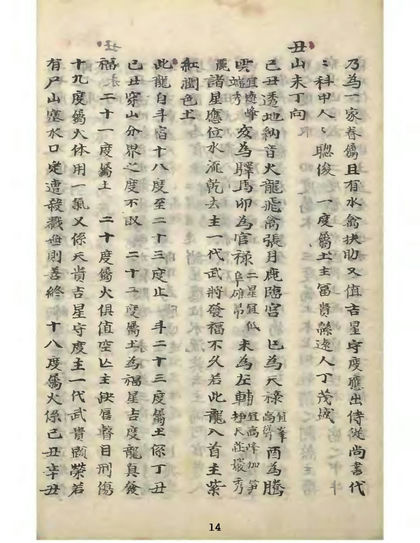 乃為一家眷屬且有水禽扶助又值吉星守度應出侍從尚書代
代科甲人人聰俊 一度屬土主富貴綿遠人丁茂盛
丑山未丁向
己丑透地納音火龍飛禽張月鹿臨宮 巳為天祿宜峯高聳 酉為騰
雲宜遠峰端秀 亥為驛馬 卯為官祿二星宜低 未為左輔宜高峰加笋
諸星應位水流乾去主一代武將發福不久若此龍入首主紫
紅潤色土
此龍自斗宿十八度至二十三度止 斗二十三度屬土係丁丑
己丑穿山分界之度不取 二十二度屬土為福星吉度龍真發
福 二十一度屬土 二十度屬火俱值空亡主缺唇瞽目刑傷
十九度屬火休用一氣又係天貴吉星守度主一代武貴顯榮若
有尸山塞水口定遭殺戮無則善終 十八度屬火係己丑辛丑
14